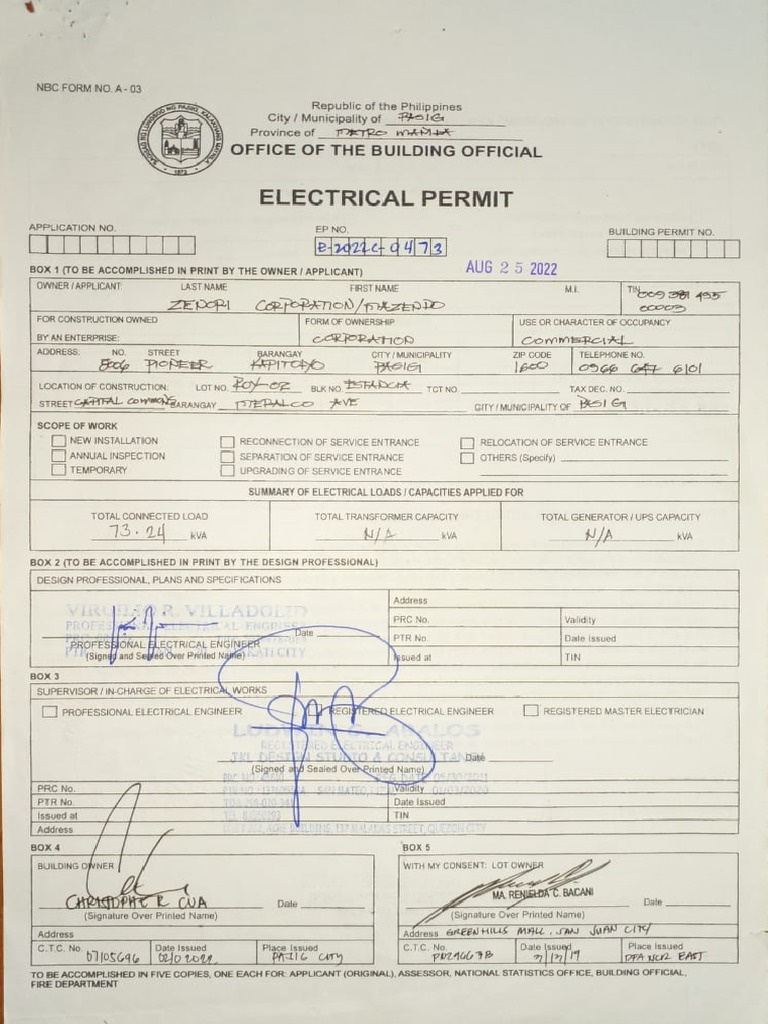 NBC FORM NO. A - 03
Republic of the Philippines
City / Municipality of PASIG
Province of METRO MANILA
OFFICE OF THE BUILDING OFFICIAL
ELECTRICAL PERMIT
APPLICATION NO.
EP NO.
BUILDING PERMIT NO.
E-2022C-0473
AUG 25 2022
BOX 1 (TO BE ACCOMPLISHED IN PRINT BY THE OWNER / APPLICANT)
OWNER / APPLICANT: LAST NAME FIRST NAME M.I. TIN 009 381 455
ZENORI CORPORATION/MAZENDO 00003
FOR CONSTRUCTION OWNED FORM OF OWNERSHIP USE OR CHARACTER OF OCCUPANCY
BY AN ENTERPRISE: CORPORATION COMMERCIAL
ADDRESS: NO. STREET BARANGAY CITY / MUNICIPALITY ZIP CODE TELEPHONE NO.
8006 PIONEER KAPITOLYO PASIG 1600 0966 647 6101
LOCATION OF CONSTRUCTION: LOT NO. BLK NO ESTANCIA TCT NO. TAX DEC. NO.
STREET CAPITAL COMMONS BARANGAY MERALCO AVE CITY / MUNICIPALITY OF PASIG
SCOPE OF WORK
NEW INSTALLATION RECONNECTION OF SERVICE ENTRANCE RELOCATION OF SERVICE ENTRANCE
ANNUAL INSPECTION SEPARATION OF SERVICE ENTRANCE OTHERS (Specify)
TEMPORARY UPGRADING OF SERVICE ENTRANCE
SUMMARY OF ELECTRICAL LOADS / CAPACITIES APPLIED FOR
TOTAL CONNECTED LOAD TOTAL TRANSFORMER CAPACITY TOTAL GENERATOR / UPS CAPACITY
73.24 kVA N/A kVA N/A kVA
BOX 2 (TO BE ACCOMPLISHED IN PRINT BY THE DESIGN PROFESSIONAL)
DESIGN PROFESSIONAL, PLANS AND SPECIFICATIONS
Address
VIRGILIO R. VILLADOLID
PROFESSIONAL ELECTRICAL ENGINEER
PRC No. Validity
Date
PTR No. Date Issued
PROFESSIONAL ELECTRICAL ENGINEER
(Signed and Sealed Over Printed Name)
Issued at TIN
BOX 3
SUPERVISOR / IN-CHARGE OF ELECTRICAL WORKS
PROFESSIONAL ELECTRICAL ENGINEER REGISTERED ELECTRICAL ENGINEER REGISTERED MASTER ELECTRICIAN
ABALOS
REGISTERED ELECTRICAL ENGINEER
JKL DESIGN STUDIO & CONSULTANT
Date
(Signed and Sealed Over Printed Name)
PRC No. Validity
PTR No. Date Issued
Issued at TIN
Address
BOX 4
BOX 5
BUILDING OWNER
WITH MY CONSENT: LOT OWNER
CHRISTOPHER CUA Date
MA. RENIELDA C. BACANI Date
(Signature Over Printed Name)
(Signature Over Printed Name)
Address
Address GREENHILLS MALL, SAN JUAN CITY
C.T.C. No. Date Issued Place Issued
07105696 PASIG CITY
C.T.C. No. Date Issued Place Issued
DFA NCR EAST
TO BE ACCOMPLISHED IN FIVE COPIES, ONE EACH FOR: APPLICANT (ORIGINAL), ASSESSOR, NATIONAL STATISTICS OFFICE, BUILDING OFFICIAL,
FIRE DEPARTMENT